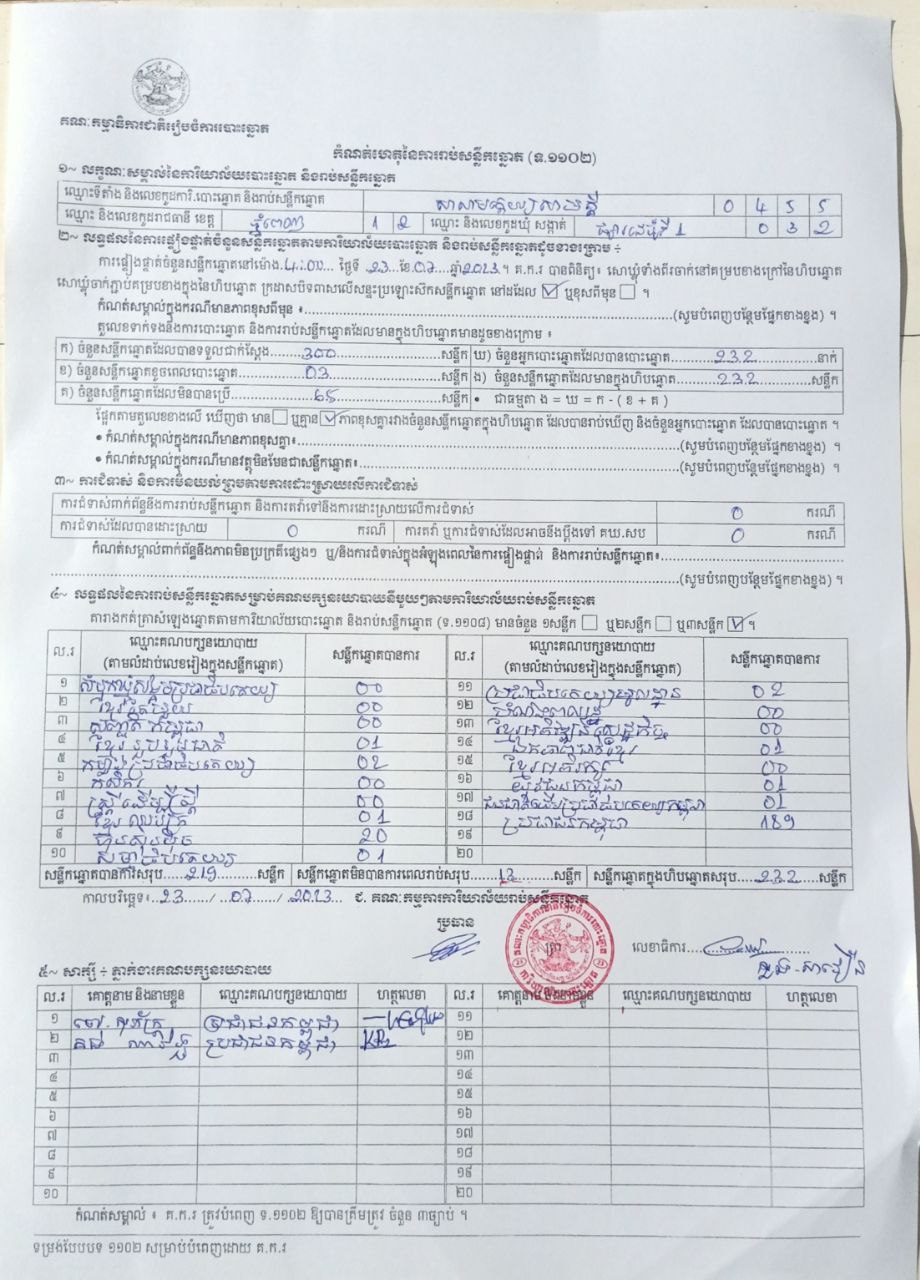 គណៈកម្មាធិការជាតិរៀបចំការបោះឆ្នោត
កំណត់ហេតុនៃការរាប់សន្លឹកឆ្នោត (ទ.១១០២)
១~ លក្ខណៈសម្គាល់នៃការិយាល័យបោះឆ្នោត និងរាប់សន្លឹកឆ្នោត
ឈ្មោះទីតាំង និងលេខកូដការិ.បោះឆ្នោត និងរាប់សន្លឹកឆ្នោត 0 4 5 5
ឈ្មោះ និងលេខកូដរាជធានី ខេត្ត ភ្នំពេញ 1 2 ឈ្មោះ និងលេខកូដឃុំ សង្កាត់ ផ្សារដេប៉ូទី 1 0 3 2
២~ លទ្ធផលនៃការផ្ទៀងផ្ទាត់ចំនួនសន្លឹកឆ្នោតតាមការិយាល័យបោះឆ្នោត និងរាប់សន្លឹកឆ្នោតដូចខាងក្រោម ÷
ការផ្ទៀងផ្ទាត់ចំនួនសន្លឹកឆ្នោតនៅម៉ោង ថ្ងៃទី 23 ខែ 07 ឆ្នាំ 2023 ។ គ.ក.រ បានពិនិត្យ៖ សោឃ្លុំទាំងពីរចាក់នៅគម្របខាងក្រៅនៃហិបឆ្នោត
សោឃ្លុំចាក់ភ្ជាប់គម្របខាងក្នុងនៃហិបឆ្នោត ក្រដាសបិទពាសលើសន្ទះប្រឡោះសិកសន្លឹកឆ្នោត នៅដដែល ឬខុសពីមុន ។
កំណត់សម្គាល់ក្នុងករណីមានភាពខុសពីមុន ៖ (សូមបំពេញបន្ថែមផ្នែកខាងខ្នង) ។
តួលេខទាក់ទងនឹងការបោះឆ្នោត និងការរាប់សន្លឹកឆ្នោតដែលមានក្នុងហិបឆ្នោតមានដូចខាងក្រោម ៖
ក) ចំនួនសន្លឹកឆ្នោតដែលបានទទួលជាក់ស្តែង 300 សន្លឹក ឃ) ចំនួនអ្នកបោះឆ្នោតដែលបានបោះឆ្នោត 232 នាក់
ខ) ចំនួនសន្លឹកឆ្នោតខូចពេលបោះឆ្នោត 03 សន្លឹក ង) ចំនួនសន្លឹកឆ្នោតដែលមានក្នុងហិបឆ្នោត 232 សន្លឹក
គ) ចំនួនសន្លឹកឆ្នោតដែលមិនបានប្រើ 65 សន្លឹក • ជាធម្មតា ង = ឃ = ក - ( ខ + គ )
ផ្អែកតាមតួលេខខាងលើ ឃើញថា មាន ឬគ្មាន ភាពខុសគ្នារវាងចំនួនសន្លឹកឆ្នោតក្នុងហិបឆ្នោត ដែលបានរាប់ឃើញ និងចំនួនអ្នកបោះឆ្នោត ដែលបានបោះឆ្នោត ។
• កំណត់សម្គាល់ក្នុងករណីមានភាពខុសគ្នា៖ (សូមបំពេញបន្ថែមផ្នែកខាងខ្នង) ។
• កំណត់សម្គាល់ក្នុងករណីមានវត្ថុមិនមែនជាសន្លឹកឆ្នោត៖ (សូមបំពេញបន្ថែមផ្នែកខាងខ្នង) ។
៣~ ការជំទាស់ និងការមិនយល់ព្រមតាមការដោះស្រាយលើការជំទាស់
ការជំទាស់ពាក់ព័ន្ធនឹងការរាប់សន្លឹកឆ្នោត និងការតវ៉ាទៅនឹងការដោះស្រាយលើការជំទាស់ 0 ករណី
ការជំទាស់ដែលបានដោះស្រាយ 0 ករណី ការតវ៉ា ឬការជំទាស់ដែលអាចនឹងប្តឹងទៅ គឃ.សប 0 ករណី
កំណត់សម្គាល់ពាក់ព័ន្ធនឹងភាពមិនប្រក្រតីផ្សេងៗ ឬ/និងការជំទាស់ក្នុងអំឡុងពេលនៃការផ្ទៀងផ្ទាត់ និងការរាប់សន្លឹកឆ្នោត៖
(សូមបំពេញបន្ថែមផ្នែកខាងខ្នង) ។
៤~ លទ្ធផលនៃការរាប់សន្លឹកឆ្នោតសម្រាប់គណបក្សនយោបាយនីមួយៗតាមការិយាល័យរាប់សន្លឹកឆ្នោត
តារាងកត់ត្រាសំឡេងឆ្នោតតាមការិយាល័យបោះឆ្នោត និងរាប់សន្លឹកឆ្នោត (ទ.១១០៨) មានចំនួន ១សន្លឹក ឬ២សន្លឹក ឬ៣សន្លឹក ។
ល.រ ឈ្មោះគណបក្សនយោបាយ (តាមលំដាប់លេខរៀងក្នុងសន្លឹកឆ្នោត) សន្លឹកឆ្នោតបានការ ល.រ ឈ្មោះគណបក្សនយោបាយ (តាមលំដាប់លេខរៀងក្នុងសន្លឹកឆ្នោត) សន្លឹកឆ្នោតបានការ
១ សំបុកឃ្មុំសង្គមប្រជាធិបតេយ្យ 00 ១១ ប្រជាធិបតេយ្យមូលដ្ឋាន 02
២ ខ្មែរតែមួយ 00 ១២ 00
៣ សញ្ជាតិកម្ពុជា 00 ១៣ ខ្មែរអភិវឌ្ឍន៍សេដ្ឋកិច្ច 00
៤ ខ្មែររួបរួមជាតិ 01 ១៤ ឯកភាពជាតិខ្មែរ 01
៥ កម្លាំងប្រជាធិបតេយ្យ 02 ១៥ ខ្មែរអភិរក្ស 00
៦ កសិករ 00 ១៦ យុវជនកម្ពុជា 01
៧ ស្ត្រីដើម្បីស្ត្រី 00 ១៧ ជនជាតិដើមប្រជាធិបតេយ្យកម្ពុជា 01
៨ ខ្មែរឈប់ក្រ 01 ១៨ ប្រជាជនកម្ពុជា 189
៩ ហ្វ៊ុនស៊ិនប៉ិច 20 ១៩
១០ សមធិបតេយ្យ 01 ២០
សន្លឹកឆ្នោតបានការសរុប 219 សន្លឹក សន្លឹកឆ្នោតមិនបានការពេលរាប់សរុប 13 សន្លឹក សន្លឹកឆ្នោតក្នុងហិបឆ្នោតសរុប 232 សន្លឹក
កាលបរិច្ឆេទ៖ 23 / 07 / 2023 ជ. គណៈកម្មការការិយាល័យរាប់សន្លឹកឆ្នោត
ប្រធាន
លេខាធិការ
៥~ សាក្សី ÷ ភ្នាក់ងារគណបក្សនយោបាយ
ល.រ គោត្តនាម និងនាមខ្លួន ឈ្មោះគណបក្សនយោបាយ ហត្ថលេខា ល.រ គោត្តនាម និងនាមខ្លួន ឈ្មោះគណបក្សនយោបាយ ហត្ថលេខា
១ ប្រជាជនកម្ពុជា ១១
២ ប្រជាជនកម្ពុជា ១២
៣ ១៣
៤ ១៤
៥ ១៥
៦ ១៦
៧ ១៧
៨ ១៨
៩ ១៩
១០ ២០
កំណត់សម្គាល់ ៖ គ.ក.រ ត្រូវបំពេញ ទ.១១០២ ឱ្យបានត្រឹមត្រូវ ចំនួន ៣ច្បាប់ ។
ទម្រង់បែបបទ ១១០២ សម្រាប់បំពេញដោយ គ.ក.រ